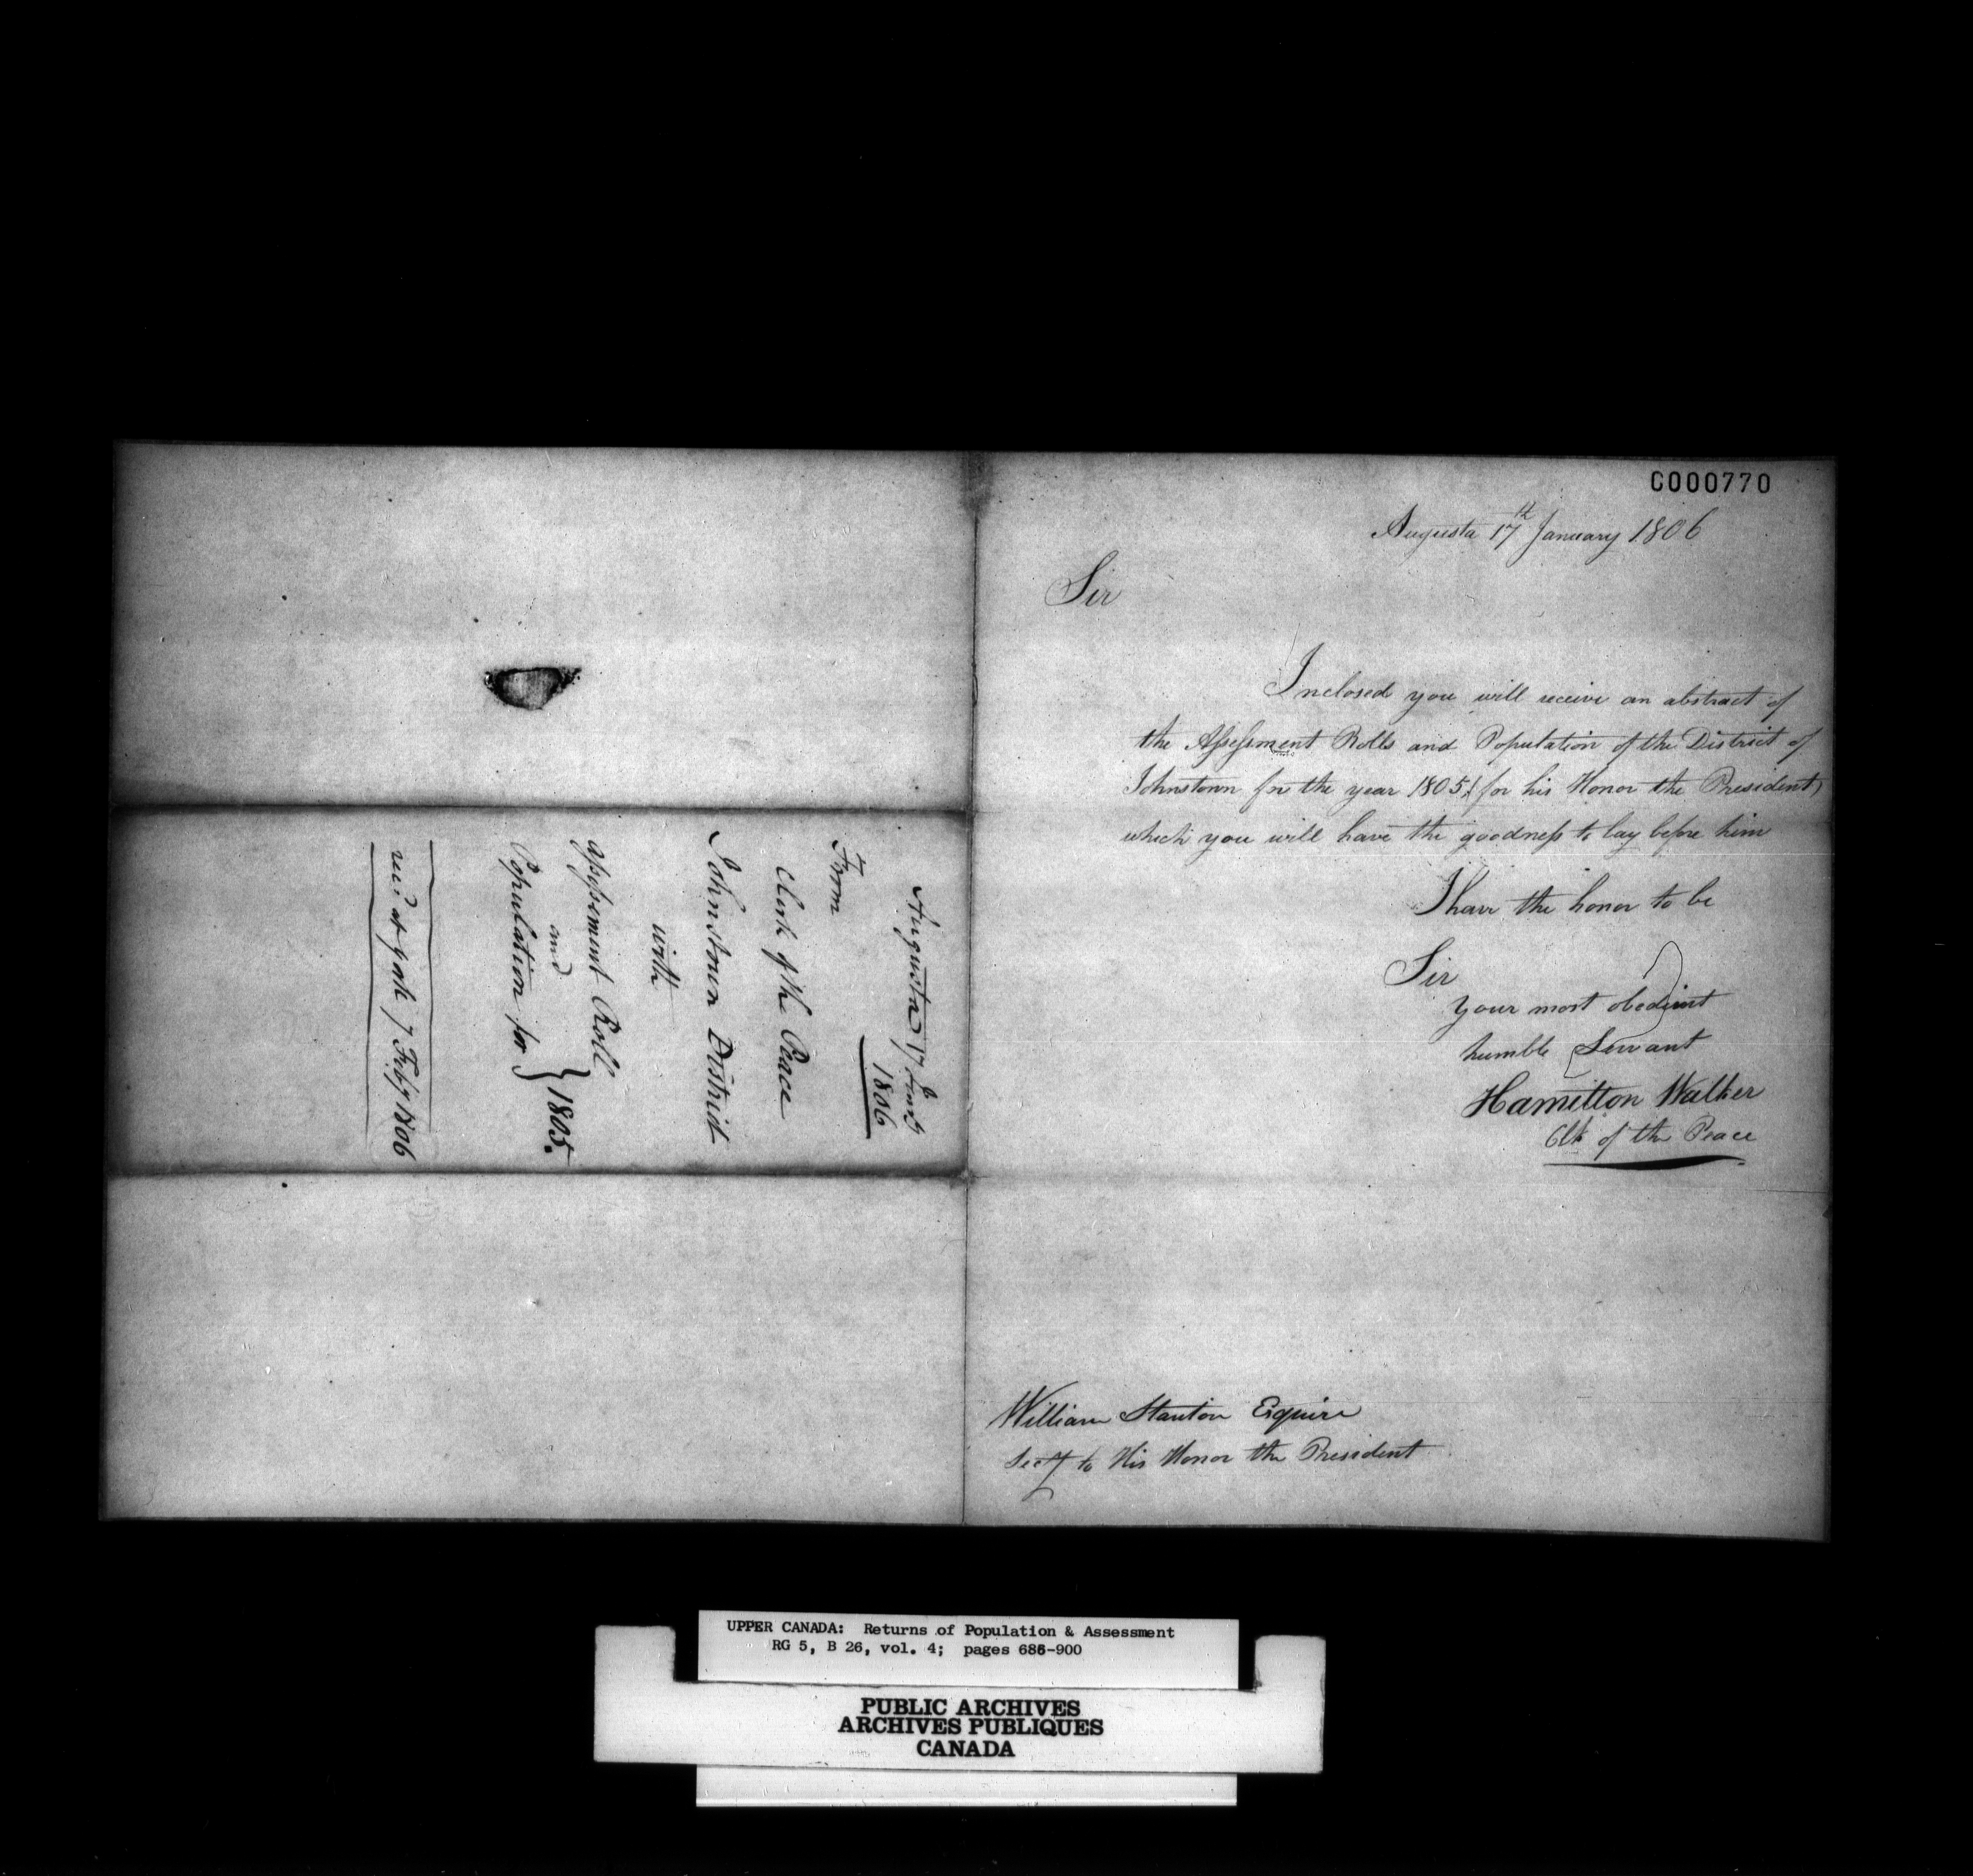 C000770
Augusta 17th January 1806
Sir
Inclosed you will receive an abstract of
the Assessment Rolls and Population of the District of
Johnstown for the year 1805 (for his Honor the President)
which you will have the goodness to lay before him
I have the honor to be
Sir
your most obedient
humble Servant
Hamilton Walker
Clk of the Peace
William Stanton Esquire
Secy to His Honor the President
Augusta 17
1806
From
Clerk of the Peace
Johnstown District
with
assessment Roll
and
Population for } 1805.
recd at 7 Feby 1806
UPPER CANADA: Returns of Population & Assessment
RG 5, B 26, vol. 4; pages 686-900
PUBLIC ARCHIVES
ARCHIVES PUBLIQUES
CANADA